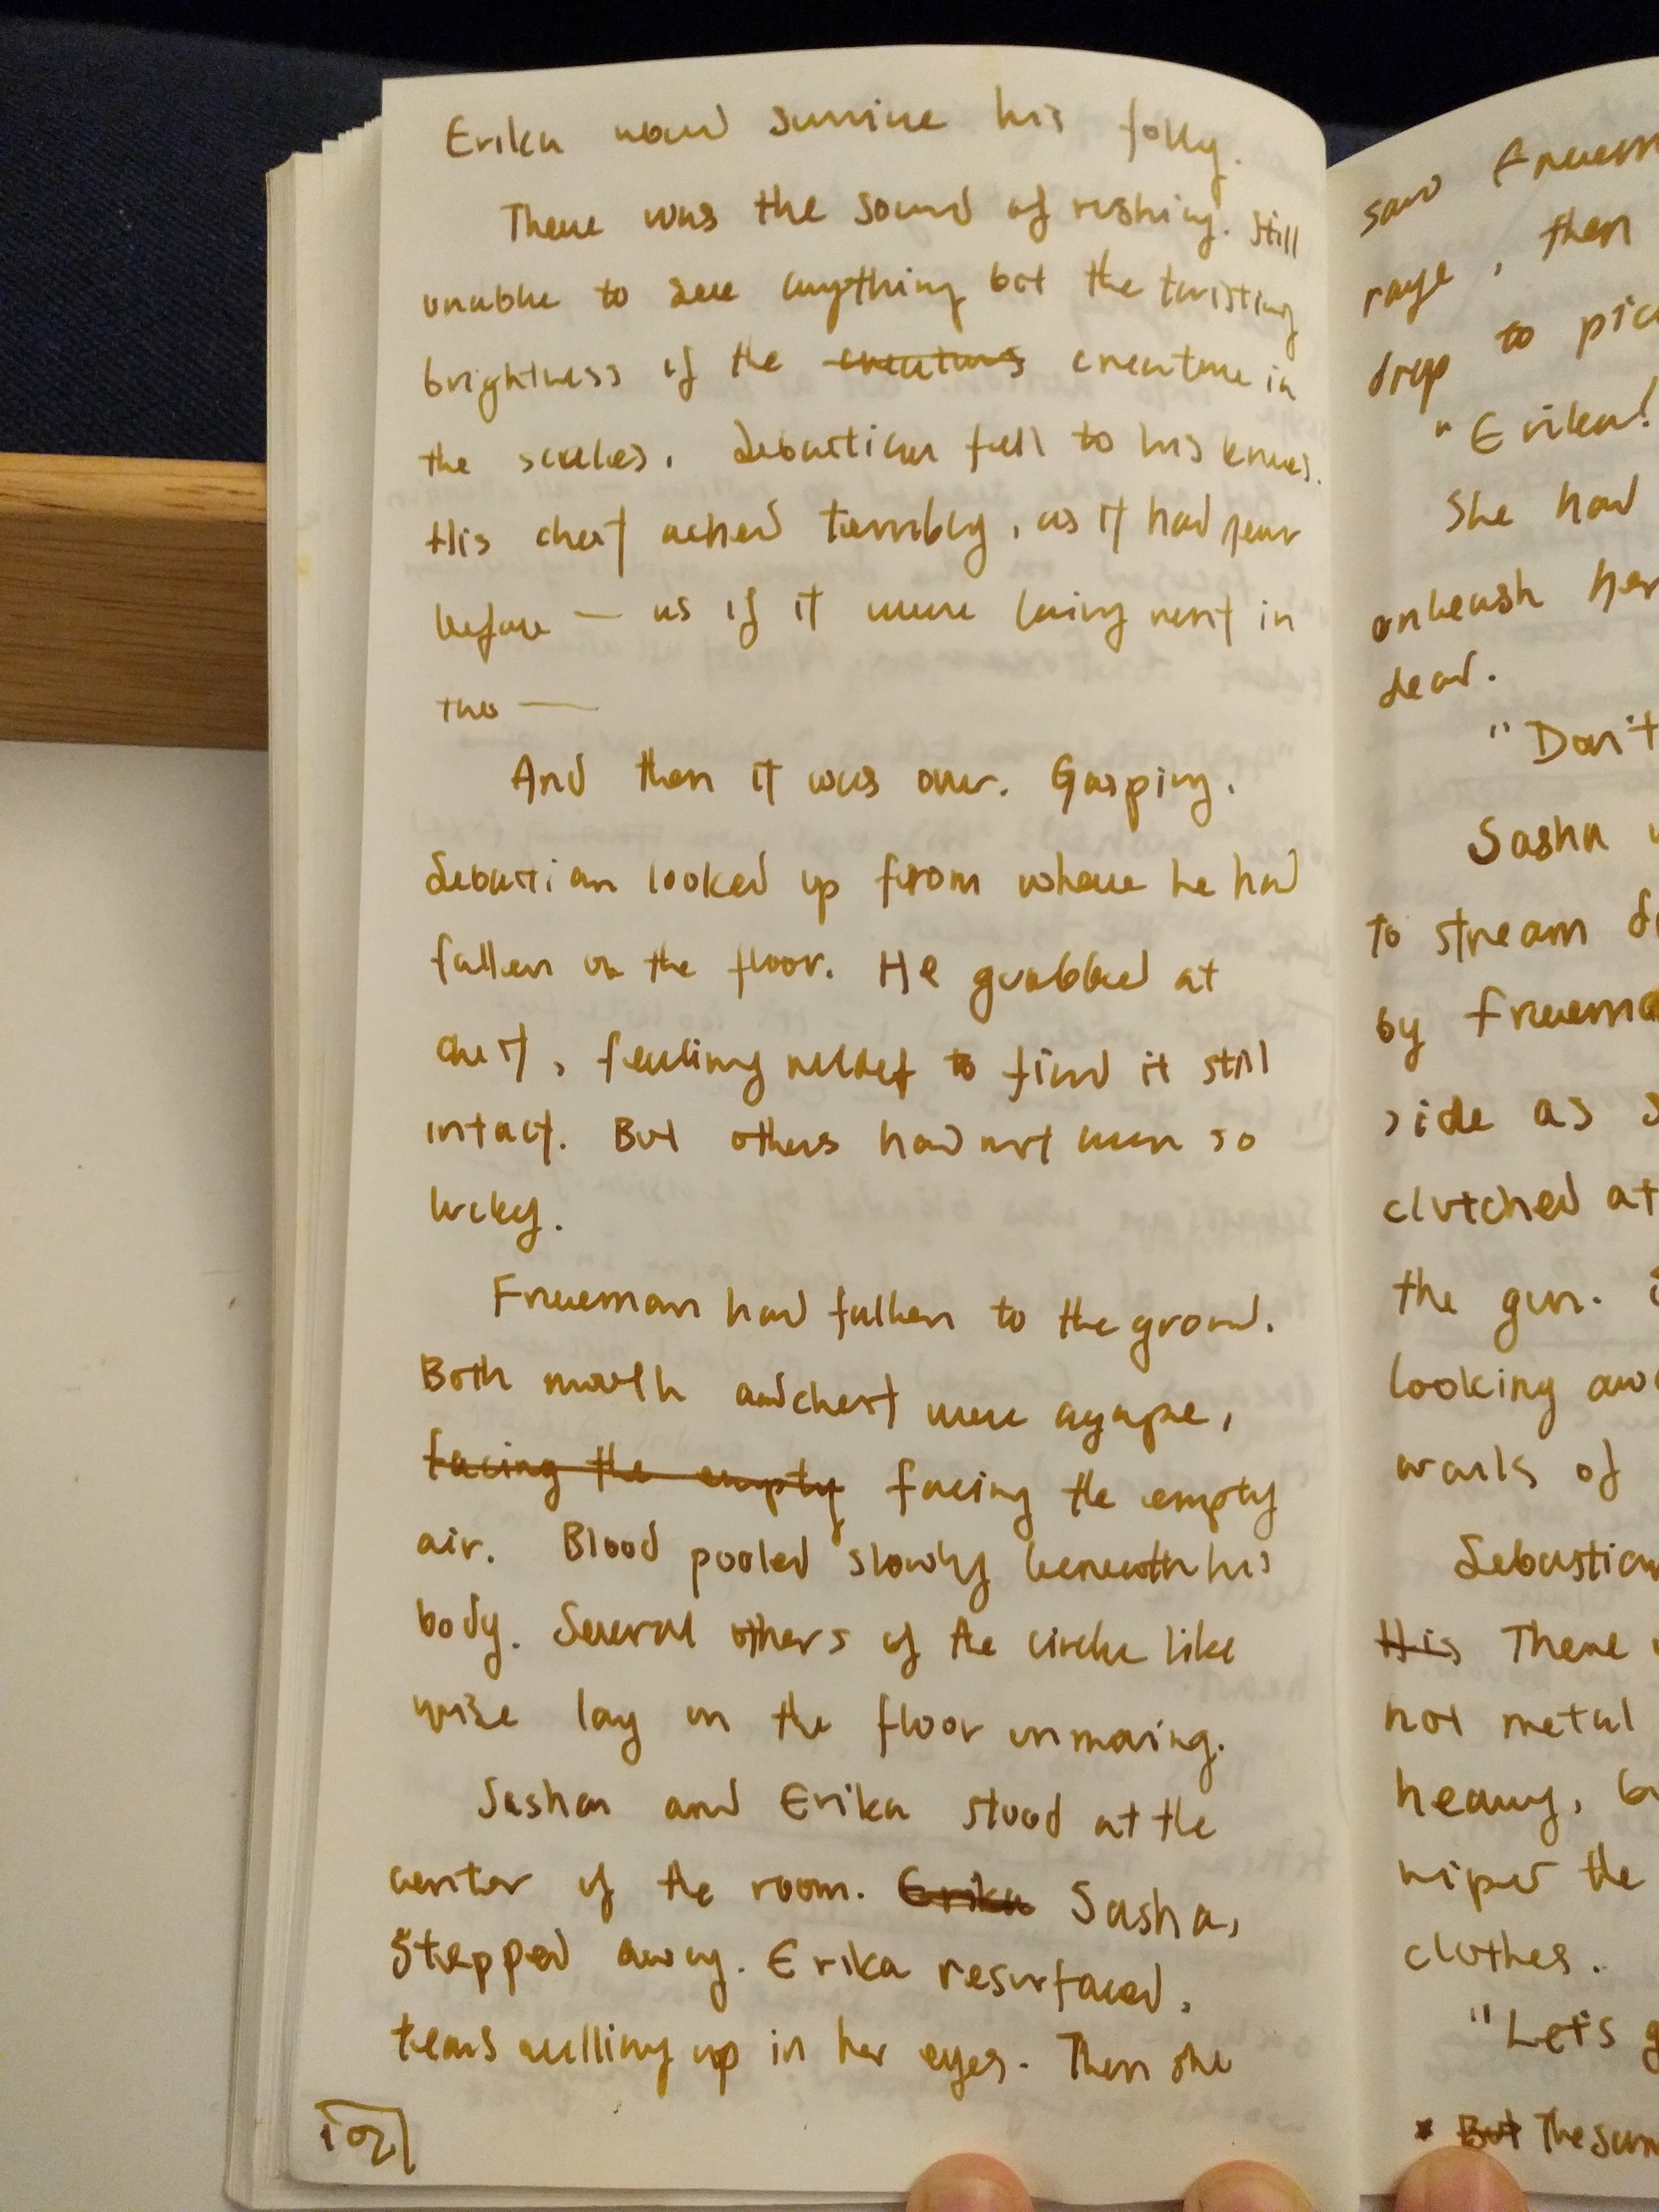 Erika would survive his folly.
There was the sound of rushing. Still
unable to see anything but the twisting
brightness of the creatures creature in
the scales. Sebastian fell to his knees.
His chest ached terribly, as it had year
before — as if it were being rent in
two —
And then it was over. Gasping.
Sebastian looked up from where he had
fallen on the floor. He grabbed at
chest, feeling relief to find it still
intact. But others had not been so
lucky.
Freeman had fallen to the ground.
Both mouth and chest were agape,
facing the empty facing the empty
air. Blood pooled slowly beneath his
body. Several others of the circle like
wise lay on the floor unmoving.
Sasha and Erika stood at the
center of the room. Erika Sasha,
stepped away. Erika resurfaced,
tears welling up in her eyes. Then she
102
saw Freem
rage, then
drop to pic
"Erika!
She had
unleash her
dead.
"Don't
Sasha
to stream
by Freema
side as s
clutched at
the gun.
looking awa
walls of
Sebastian
His There
not metal
heavy,
wiped the
clothes.
"Let's g
* But The sam